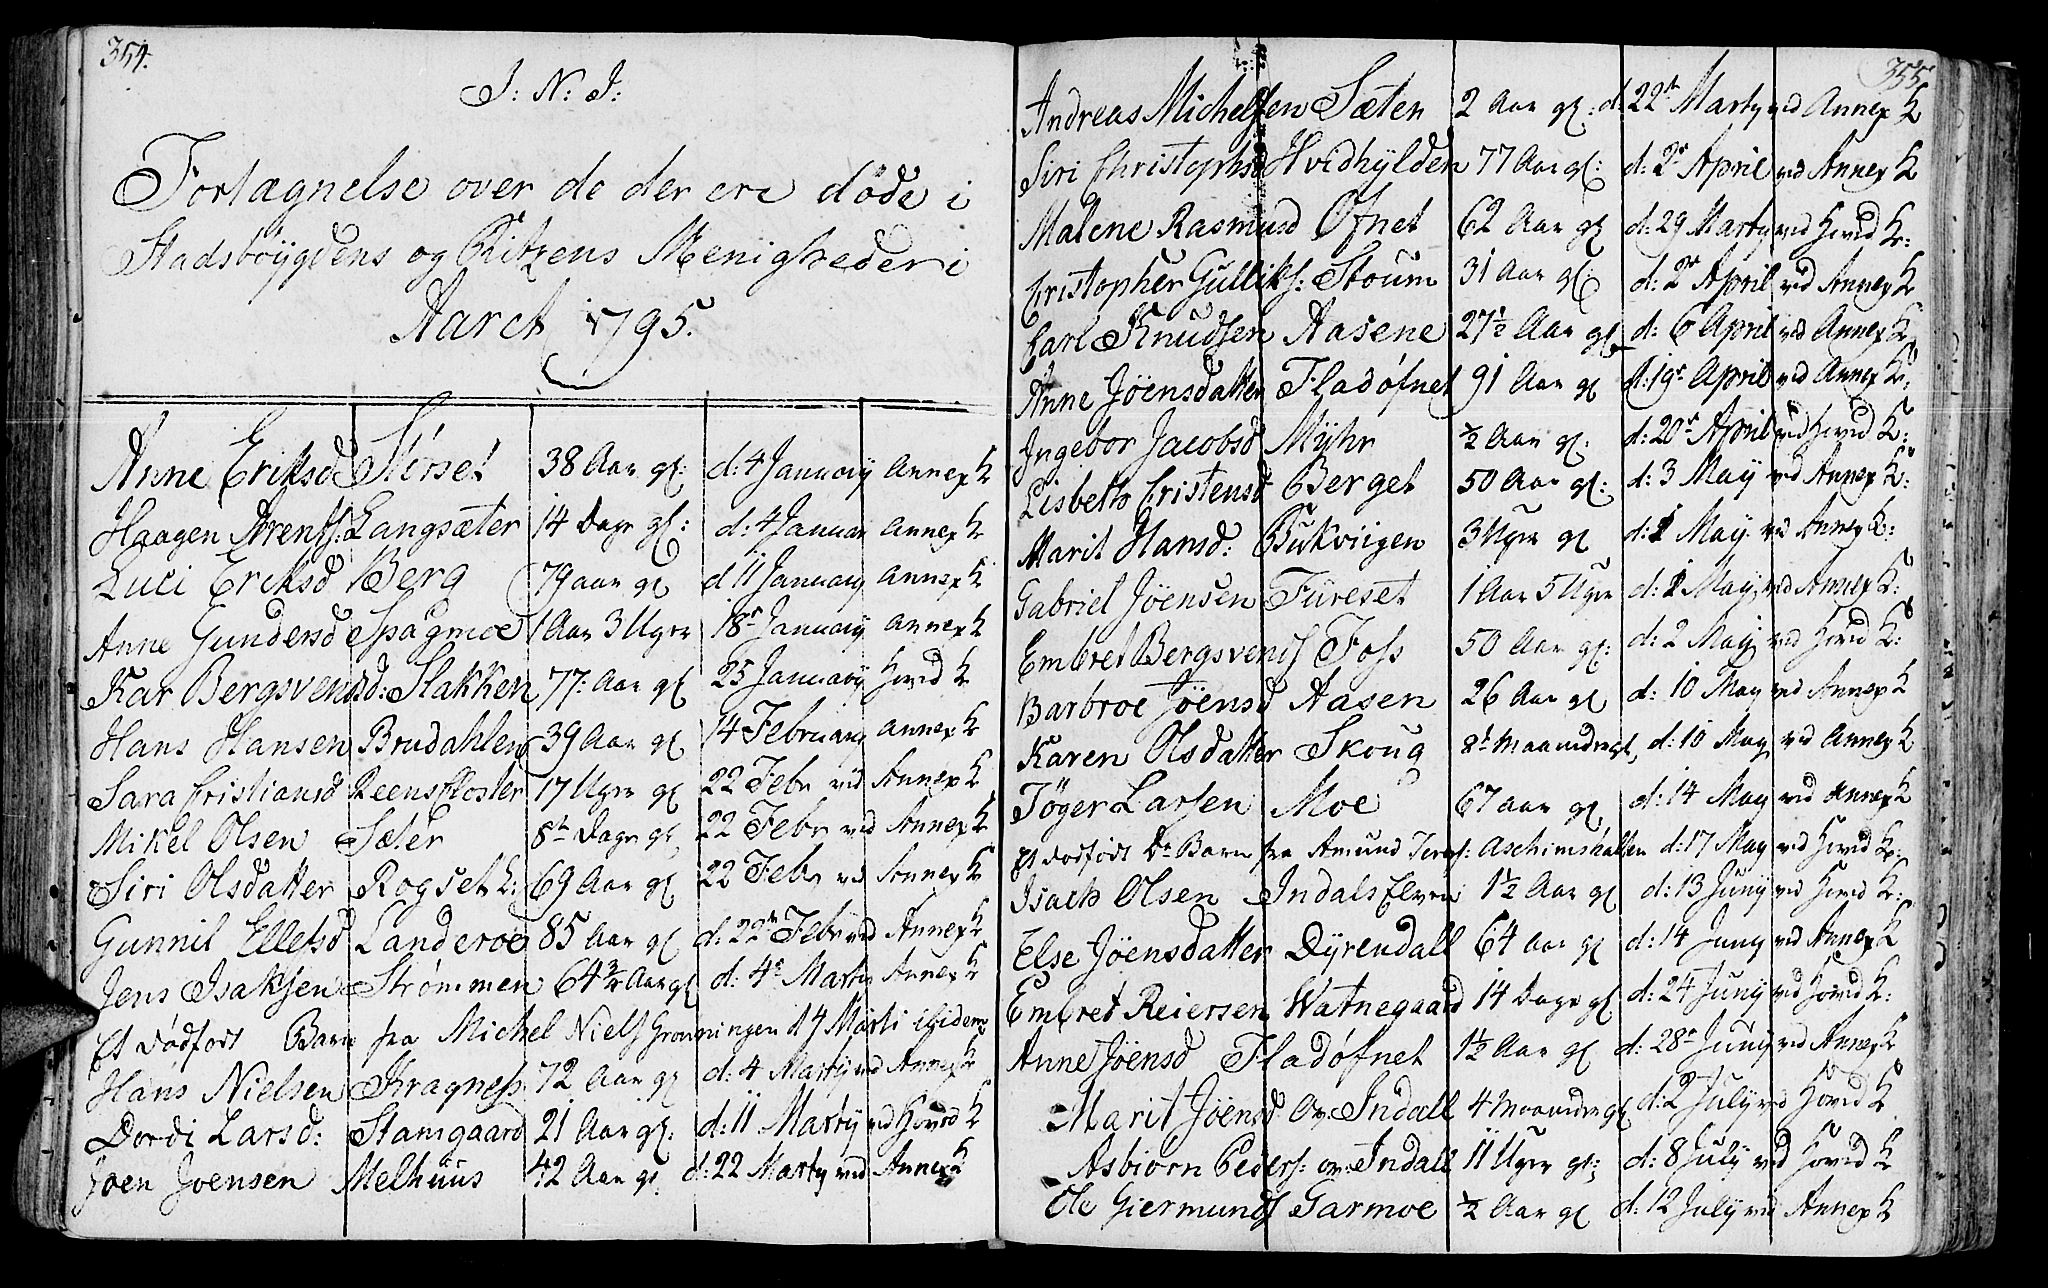 354.
J: N: J:
Fortægnelse over de der ere døde i
Stadsböÿgdens og Ritzens Menigheder i
Aaret 1795.
Anne Eriksd Störset 38 Aar gl: d: 4 Januarÿ Annex K
Haagen Arents: Langsæter 14 Dage gl: d: 4 Januar Annex K
Luci Eriksd Berg 79 aar gl d 11 January Annex K
Anne Gundersd Spagmoe 1 Aar 3 Uger 18r Januarÿ Annex K
Kar Bergsvensd: Slakken 77: Aar gl 25 Januarÿ Hovid K
Hans Hansen Brudahlen 39 Aar gl 14 February Annex K
Sara Cristiansd Reenskloster 17 Uger gl 22 Febr vid Annex K
Mikel Olsen Sæter 8te Dage gl 22 Febr vid Annex K
Siri Olsdatter Rogset L: 69 Aar gl 22 Febr vid Annex K
Gunnil Ellefsd Landeroe 85 Aar gl d: 22de Febr vid Annex K
Jens Isaksen Strømmen 64 1/2 Aar gl d: 4r Marty Annex K
Et dødfødt Barn fra Michel Niels Gronningen d 4 Marti ibidem
Hans Nielsen Kragness 72 Aar gl d: 4 Marty vid Annex K
Dordi Larsd: Stamgaard 21 Aar gl: d: 11 Martÿ vid Hovid K
Joen Joensen Melhuus 42 Aar gl d: 22 Marty vid Annex K
355
Andreas Michelsen Sæter 2 Aar gl: d: 22de Marty vid Annex K
Siri Christophsd Hvidhÿlden 77 Aar gl: d: 2r April vid Annex K
Malene Rasmusd Ofnet 62 Aar gl d: 29 Marty vid Hovid K:
Cristopher Gulliks: Stoum 31 Aar gl: d: 2r April vid Annex K
Carl Knudsen Aasene 27 1/2 Aar gl d: 6 April vid Annex K
Anne Jöensdatter Fladøfnet 91 Aar gl d: 19r April vid Annex K
Ingebor Jacobsd Mÿhr 1/2 Aar gl: d: 20r April vid Hovid K:
Lisbeth Cristensd Berget 50 Aar gl: d: 3 May vid Annex K:
Marit Hansd: Bukviigen 3 Uger gl d: 1 May vid Annex K:
Gabriel Jöensen Füreset 1 Aar 5 Uger d: 1 May vid Annex K:
Embret Bergsvends Foss 50 Aar gl: d: 2 May vid Hovid K:
Barbroe Jöensd Aasen 26 Aar gl d: 10 May vid Annex K
Karen Olsdatter Skoug 8te Maaneder gl d: 10 May vid Annex K
Jöger Larsen Moe 67 aar gl d: 14 May vid Annex K
Et dødfödt Barn fra Amund Aschimshallen d: 17 May vid Hovid K:
Isach Olsen Indals Elven 1 1/2 Aar gl d: 13 Junÿ vid Hovid K:
Else Jöensdatter Dÿrendall 64 aar gl d: 14 Juny vid Annex K
Embret Reiersen Watnegaard 14 Dage gl d: 24 Junÿ vid Hovid K:
Anne Jöensd Fladøfnet 1 1/2 Aar gl d: 28r Junÿ vid Annex K
Marit Jöensd Ov: Indall 4 Maaneder gl d: 2 Julÿ vid Hovid K
Asbiorn Peders: ov: Indall 11 Uger gl: d: 8 July vid Hovid K
Ole Giermunds Garmoe 1/2 Aar gl d: 12 Julÿ vid Annex K